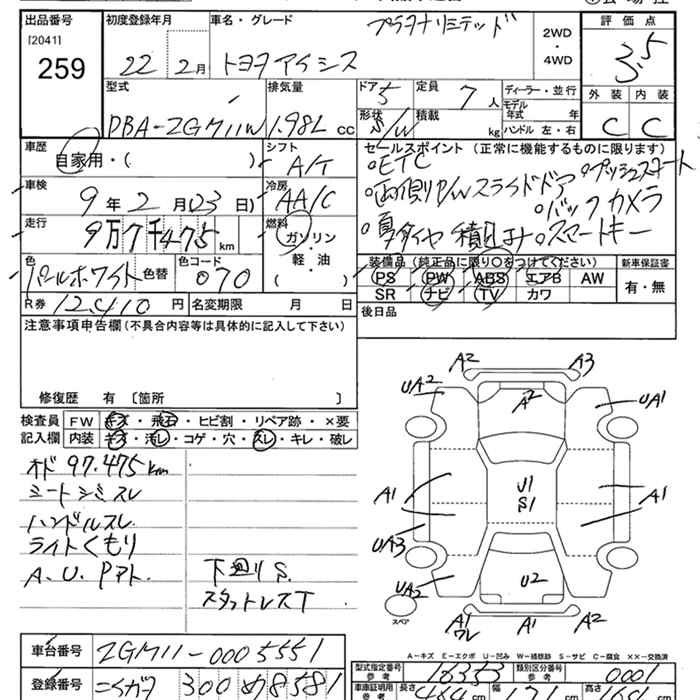 出品番号 初度登録年月 車名・グレード プラタナリミテッド 評価点
[2041] 2WD
・
4WD
259 22年 2月 トヨタアイシス 3.5
型式 排気量 ドア 5 定員 7人 ディーラー・並行 外装 内装
モデル年式 年
DBA-ZGM11W 1.98L cc 形状 S/W 積載 kg ハンドル 左・右 C C
車歴 シフト セールスポイント (正常に機能するものに限ります)
自家用・( ) A/T ○ETC ○プッシュスタート
車検 冷房 ○両側P/Wスライドドア
9年2月03日) AA/C ○バックカメラ
走行 燃料 ○夏タイヤ積込み ○スマートキー
9万7千475km ガソリン
色 色替 色コード 軽・油 装備品 (純正品に限り○をつけてください) 新車保証書
パールホワイト 070 ( ) PS PW ABS エアB AW 有・無
R券 12,410円 名変期限 月 日 SR ナビ TV カワ
注意事項申告欄(不具合内容等は具体的に記入して下さい) 後日品
修復歴 有 〔箇所 〕
検査員 FW キズ・飛石・ヒビ割・リペア跡・×要
記入欄 内装 キズ・汚レ・コゲ・穴・スレ・キレ・破レ
オド 97.475km
シートシミスレ
ハンドルスレ
ライトくもり
A.U.Pアト. 下廻りS.
スタットレスT
A2 A3
UA2 A2 UA1
U1
S1
A1 A1
UA3
UA2 U2
スペア A1
ワレ A1 A2
A-キズ E-エクボ U-凹み W-補修跡 S-サビ C-腐食 ××-交換済
車台番号 ZGM11-0005551
型式指定番号 参考 16353 類別区分番号 参考 0001
登録番号 ニイガタ 300 め 8581
車庫証明用 参考 長さ cm 幅 171cm 高さ cm